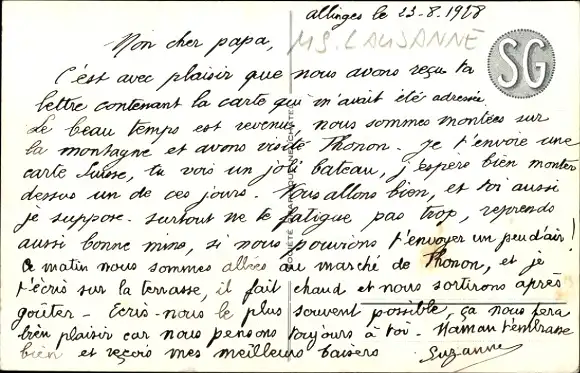 Allinges le 23-8.1928
Mon cher papa,
MS. LAUSANNE
SG
C'est avec plaisir que nous avons reçu ta
lettre contenant la carte qui m'avait été adressée.
Le beau temps est revenu, nous sommes montées sur
la montagne et avons visité Thonon. Je t'envoie une
carte Suisse, tu vois un joli bateau, j'espère bien monter
dessus un de ces jours. Nous allons bien, et toi aussi
je suppose. surtout ne te fatigue pas trop, reprends
aussi bonne mine, si nous pouvions t'envoyer un peu d'air!
Ce matin nous sommes allées au marché de Thonon, et je
t'écris sur la terrasse, il fait chaud et nous sortirons après
goûter - Ecris-nous le plus souvent possible, ça nous fera
bien plaisir car nous pensons toujours à toi. Maman t'embrasse
bien et reçois mes meilleurs baisers
Suzanne